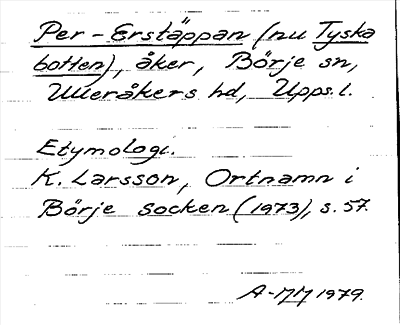 Per-Erstäppan (nu Tyska
botten), åker, Börje sn,
Ulleråkers hd, Upps. l.
Etymologi.
K. Larsson, Ortnamn i
Börje socken (1973), s. 57.
A-MM 1979.